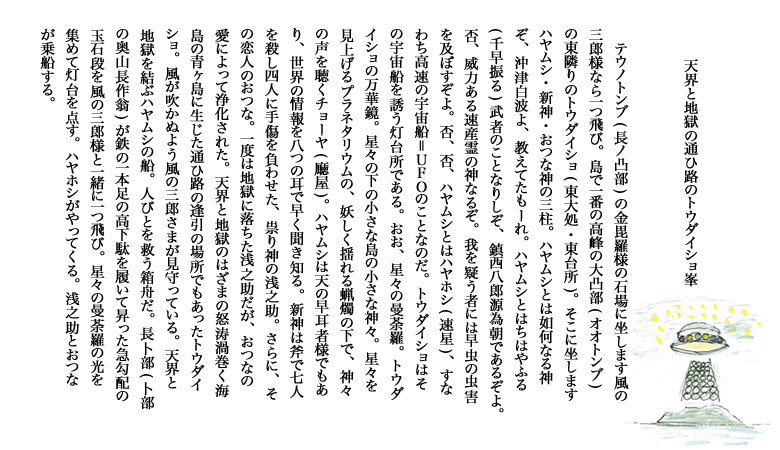 天界と地獄の通ひ路のトウダイショ峯
テウノトンブ(長ノ凸部)の金毘羅様の石場に坐します風の
三郎様なら一つ飛び。島で一番の高峰の大凸部(オオトンブ)
の東隣りのトウダイショ(東大処・東台所)。そこに坐します
ハヤムシ・新神・おつな神の三柱。ハヤムシとは如何なる神
ぞ、沖津白波よ、教えてたもーれ。ハヤムシとはちはやふる
(千早振る)武者のことなりしぞ、鎮西八郎源為朝であるぞよ。
否、威力ある速産霊の神なるぞ。我を疑う者には早虫の虫害
を及ぼすぞよ。否、否、ハヤムシとはハヤホシ(速星)、すな
わち高速の宇宙船=UFOのことなのだ。トウダイショはそ
の宇宙船を誘う灯台所である。おお、星々の曼荼羅。トウダ
イショの万華鏡。星々の下の小さな島の小さな神々。星々を
見上げるプラネタリウムの、妖しく揺れる蝋燭の下で、神々
の声を聴くチョーヤ(廳屋)。ハヤムシは天の早耳者様でもあ
り、世界の情報を八つの耳で早く聞き知る。新神は斧で七人
を殺し四人に手傷を負わせた、祟り神の浅之助。さらに、そ
の恋人のおつな。一度は地獄に落ちた浅之助だが、おつなの
愛によって浄化された。天界と地獄のはざまの怒涛渦巻く海
島の青ヶ島に生じた通ひ路の逢引の場所でもあったトウダイ
ショ。風が吹かぬよう風の三郎さまが見守っている。天界と
地獄を結ぶハヤムシの船。人びとを救う箱舟だ。長卜部(卜部
の奥山長作翁)が鉄の一本足の高下駄を履いて昇った急勾配の
玉石段を風の三郎様と一緒に一つ飛び。星々の曼荼羅の光を
集めて灯台を点す。ハヤホシがやってくる。浅之助とおつな
が乗船する。